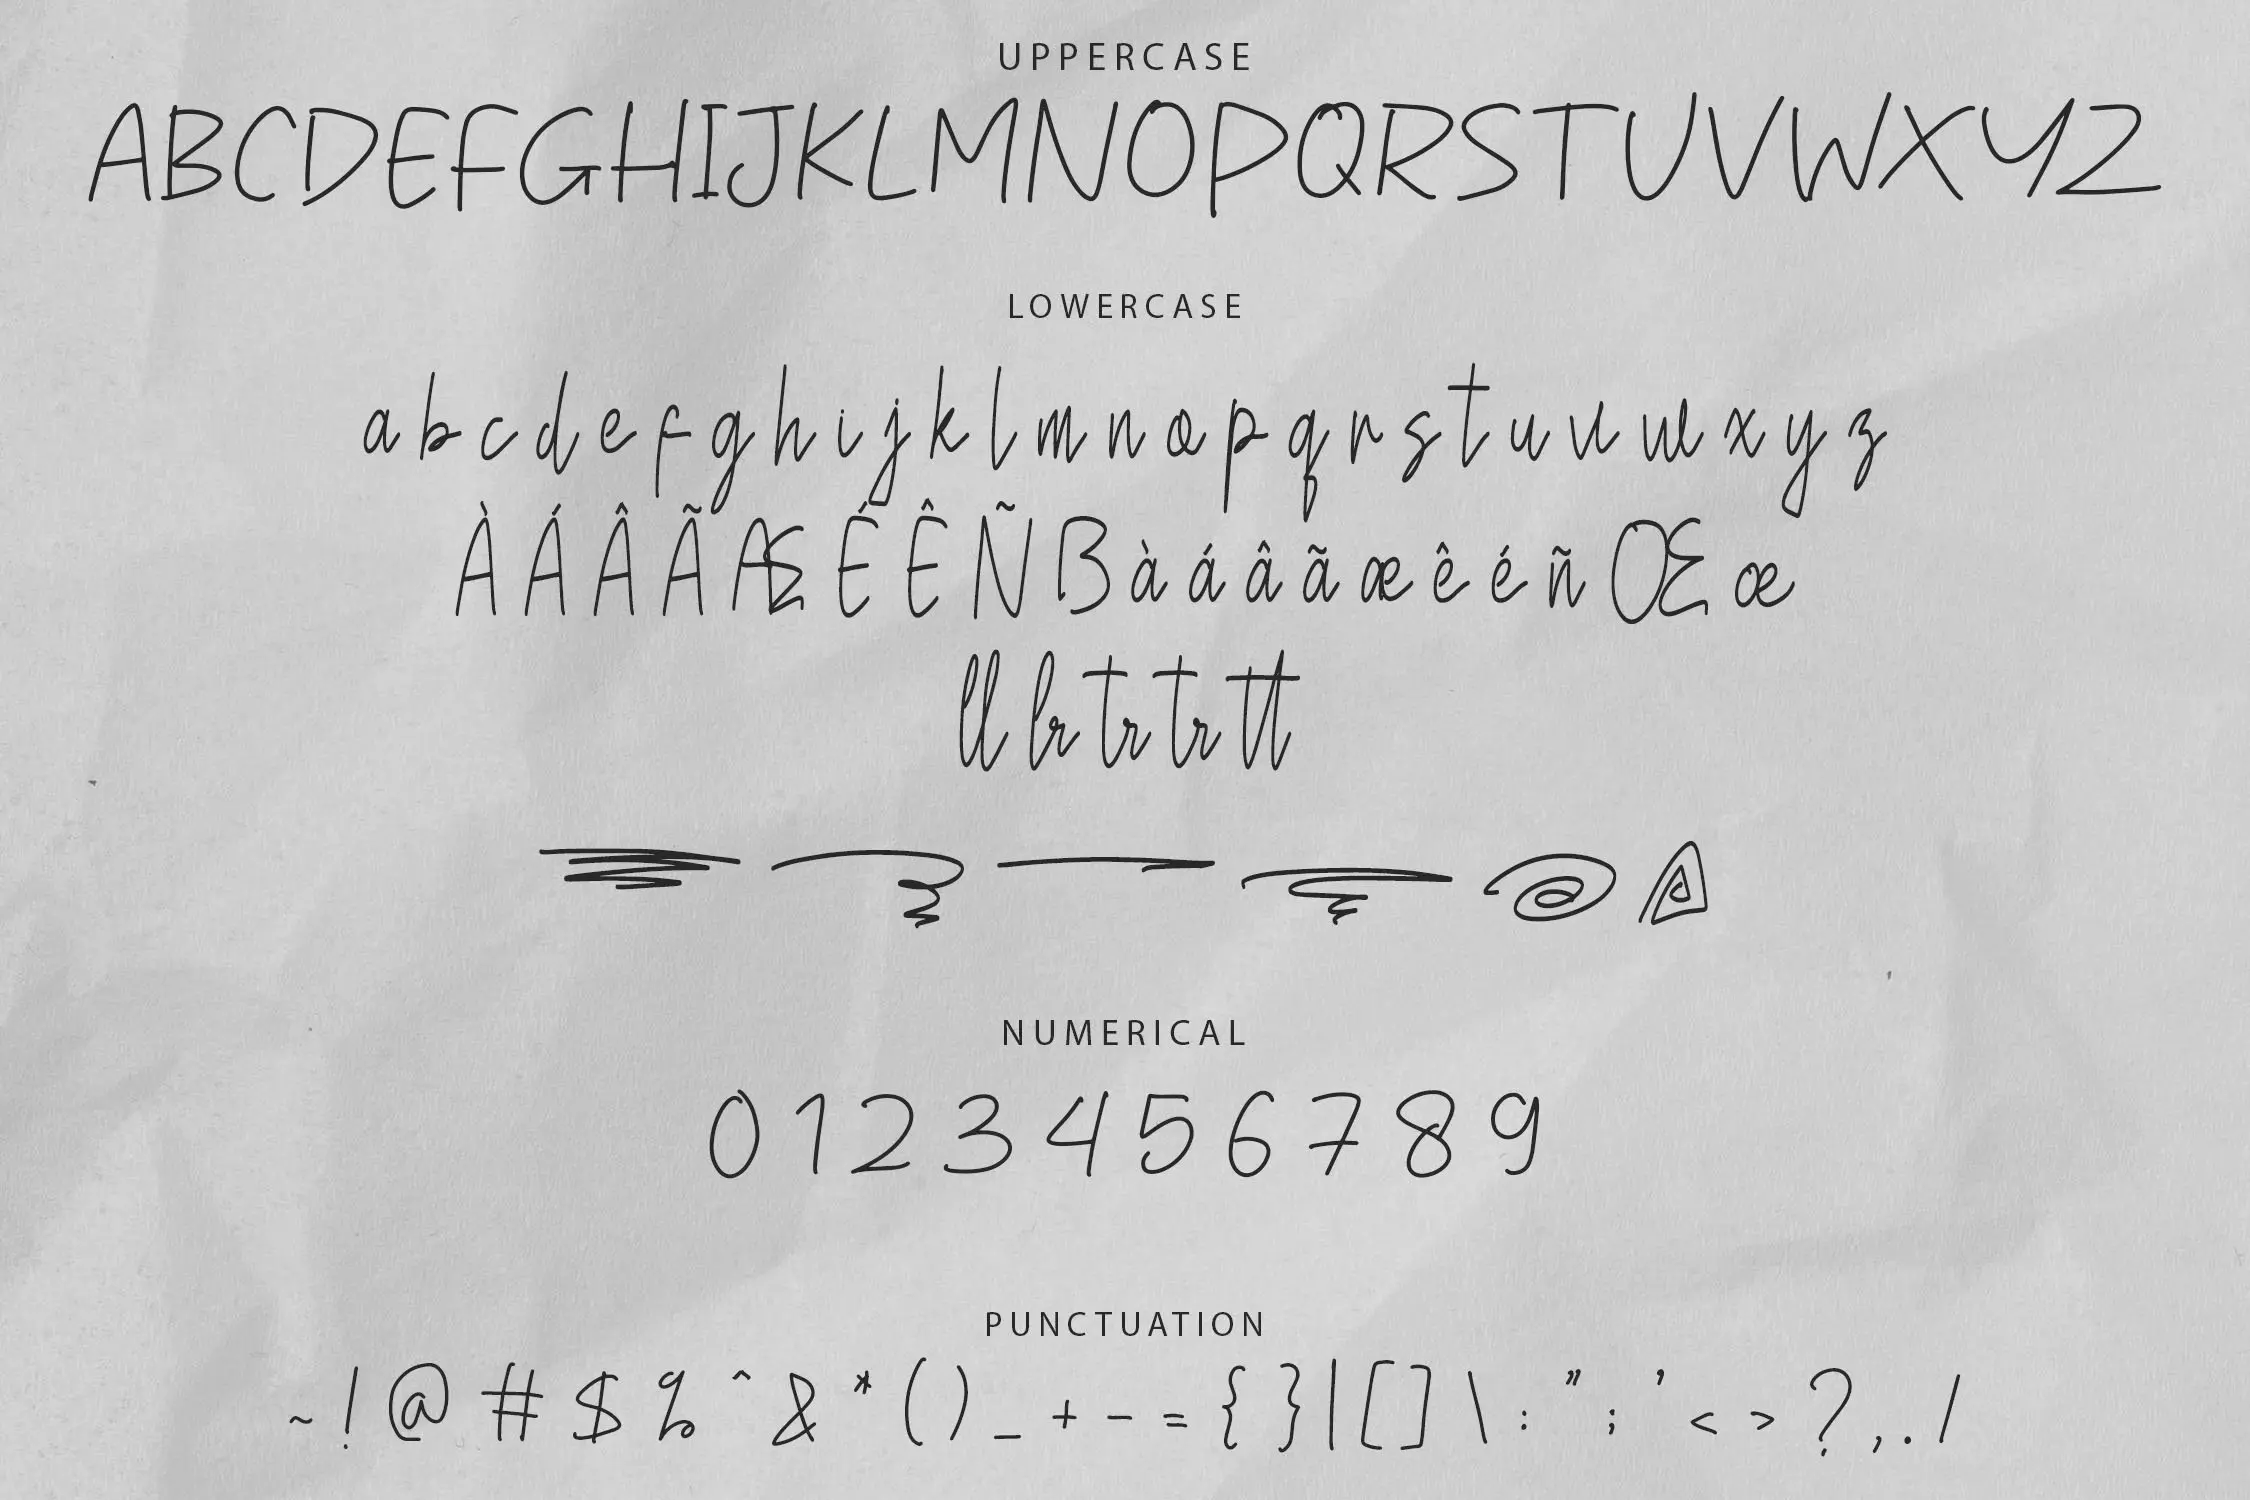 UPPERCASE
ABCDEFGHIJKLMNOPQRSTUVWXYZ
LOWERCASE
a b c d e f g h i j k l m n o p q r s t u v w x y z
À Á Â Ã Æ É Ê Ñ ß à á â ã æ ê é ñ Œ œ
ll lr tr tr tt
NUMERICAL
0 1 2 3 4 5 6 7 8 9
PUNCTUATION
~ ! @ # $ % ^ & * ( ) _ + - = { } | [ ] \ : " ; ' < > ? , . /